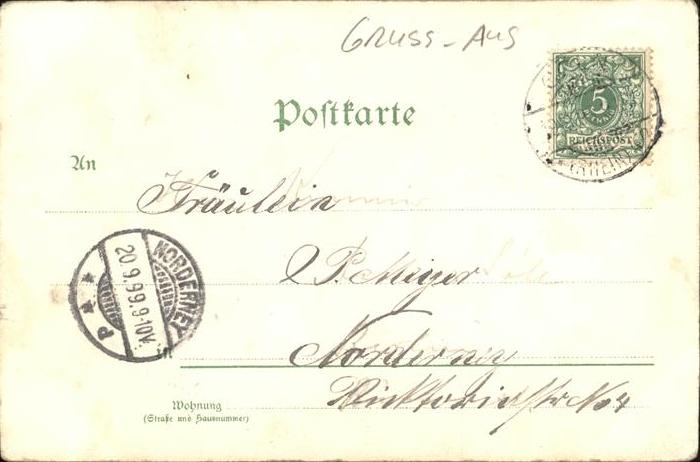 Gruss - Aus
5
PFENNIG
REICHSPOST
Postkarte
An
Fräulein
P. Meyer
NORDERNEY
20.9.99. 9-10V.
P * *
in
Norderney
Viktoriastr No 4
Wohnung
(Straße und Hausnummer)